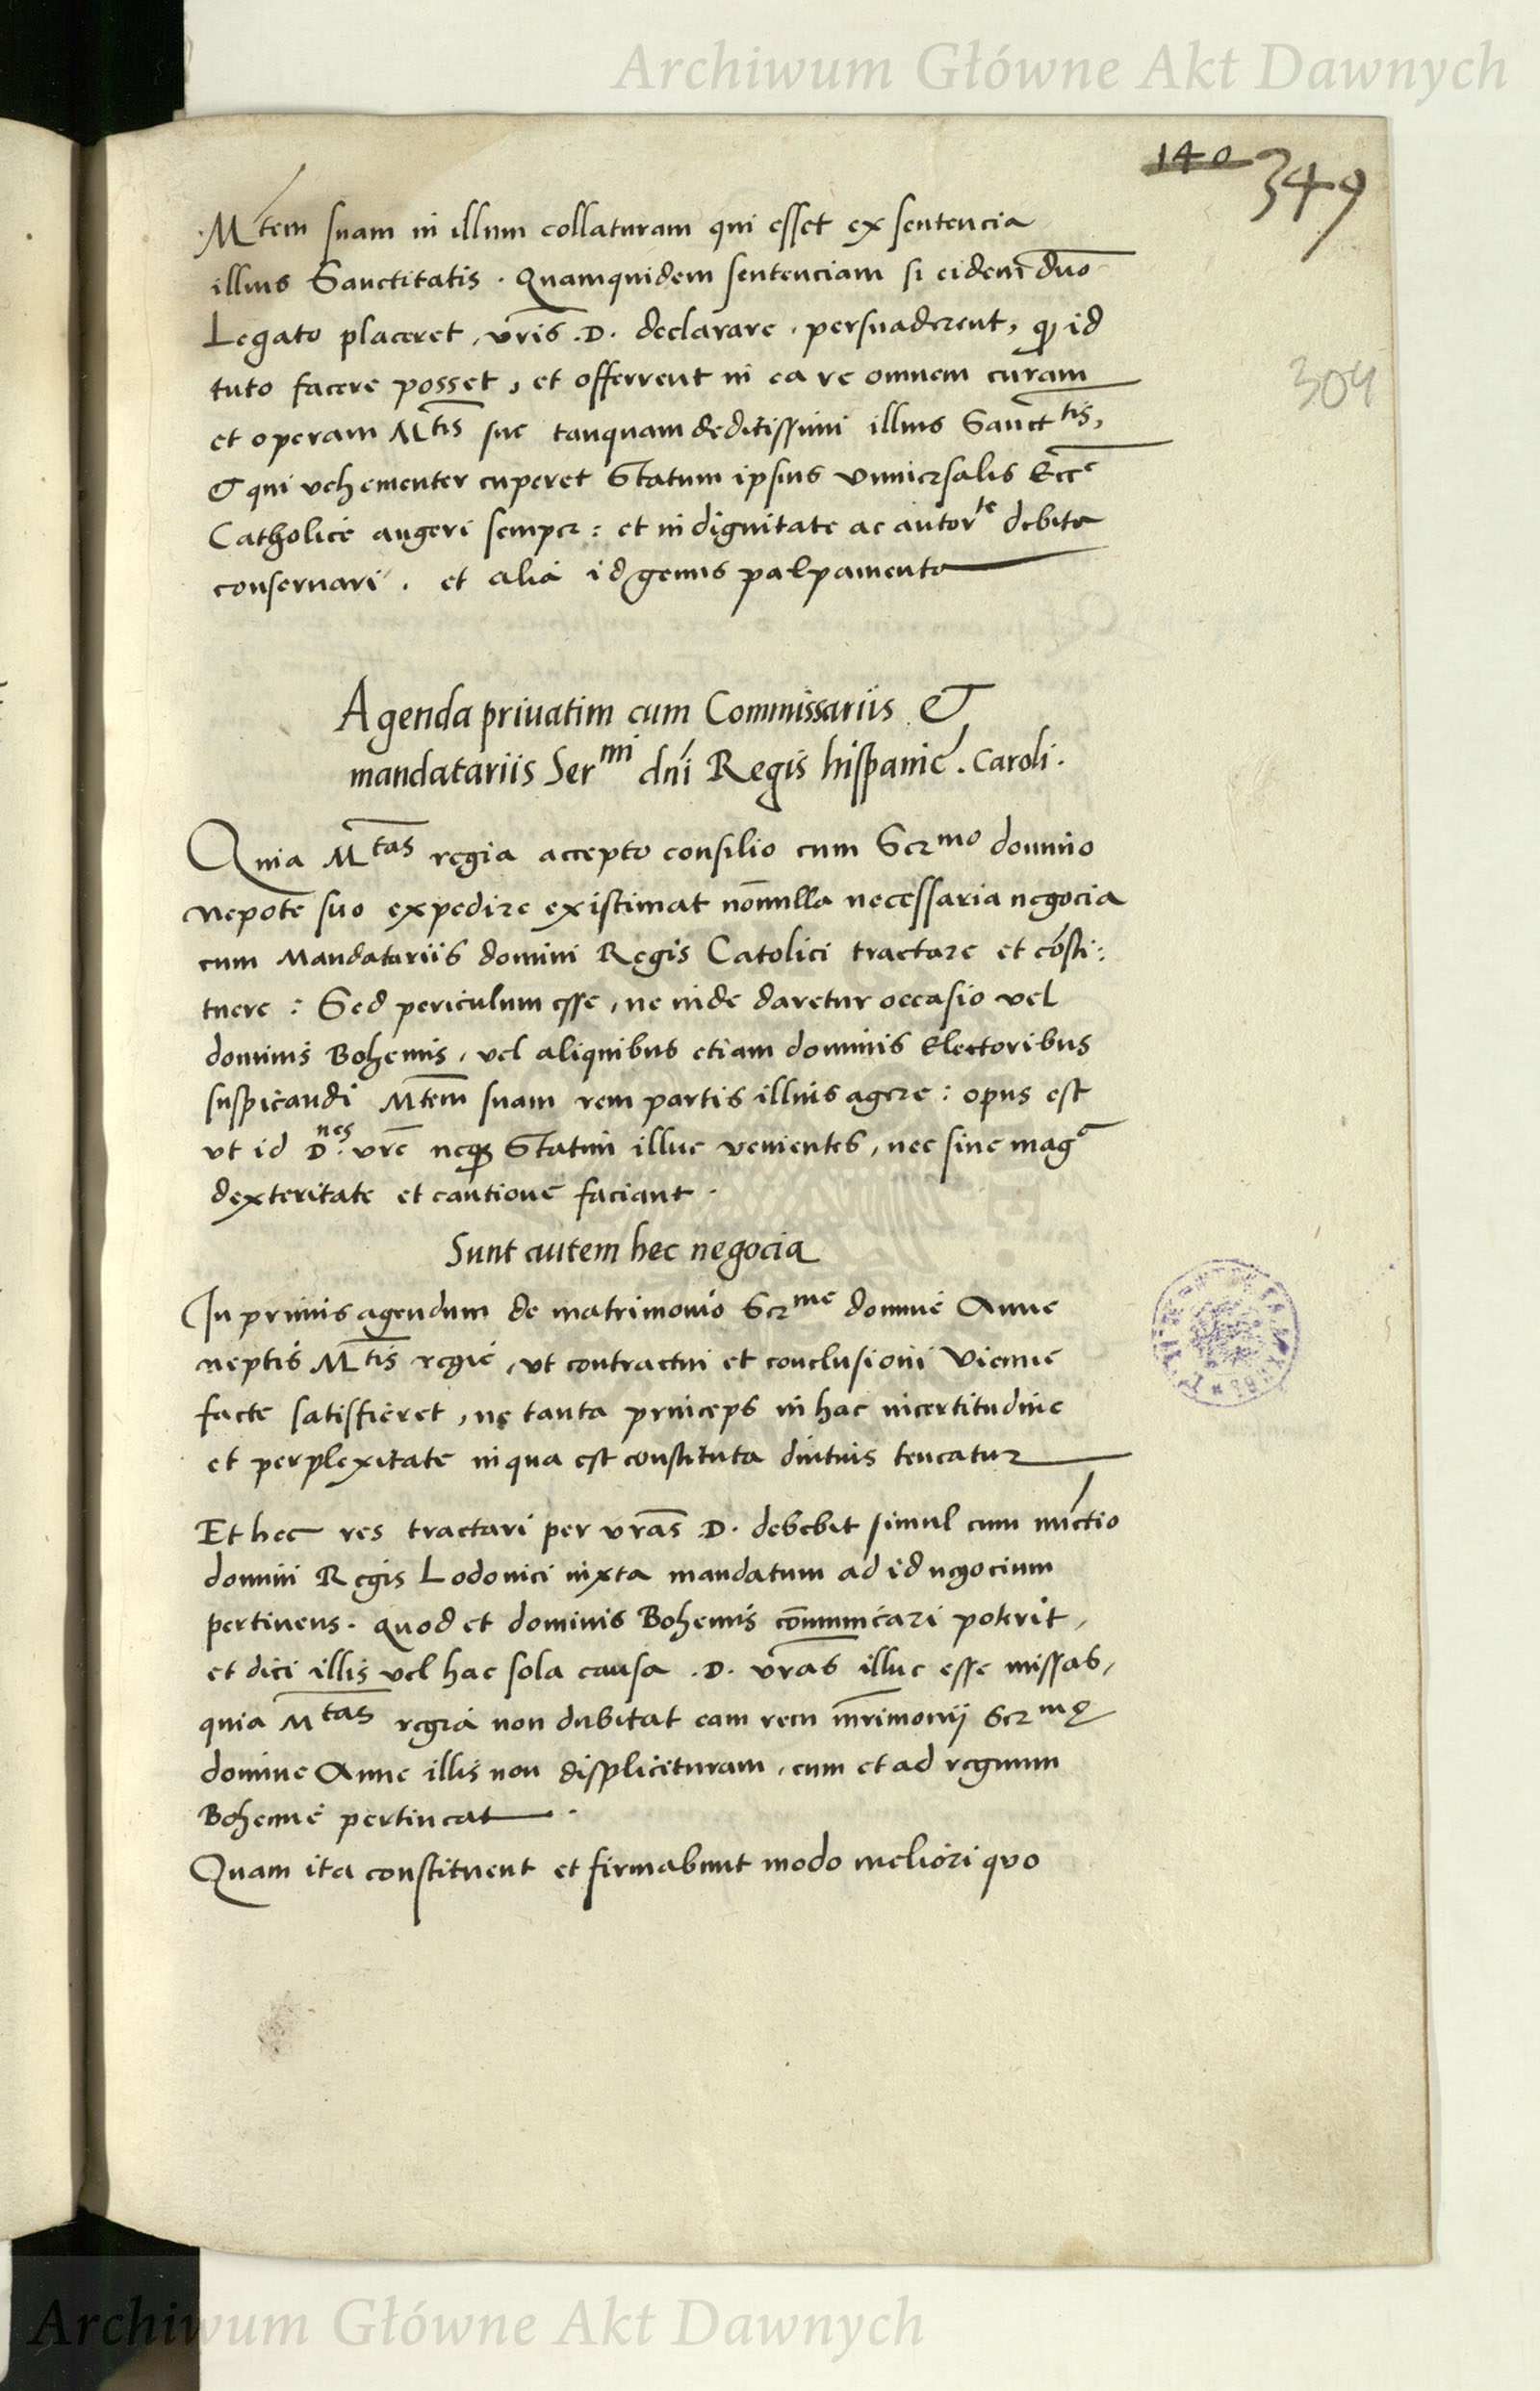 Archiwum Główne Akt Dawnych
140 349
Mtem suam in illum collaturam qui esset ex sentencia
illius Sanctitatis . Quamquidem sentenciam si eidem dno
Legato placeret, vris .D. declarare, persuaderent, qꝫ id
304
tuto facere posset, et offerrent in ea re omnem curam
et operam Mtis sue tanquam deditissimi illius Sancttis,
& qui vehementer cuperet Statum ipsius vniuersalis Ecce
Catholice augeri semper : et in dignitate ac autorte debita
conseruari . et alia id genus palpamenta
Agenda priuatim cum Commissariis &
mandatariis Sermi dni Regis hispanie . Caroli .
Quia Mtas regia accepto consilio cum Sermo domino
nepote suo expedire existimat nonnulla necessaria negocia
cum Mandatariis domini Regis Catolici tractare et consti:
tuere : Sed periculum esse, ne inde daretur occasio vel
dominis Bohemis, vel aliquibus etiam dominis Electoribus
suspicandi Mtem suam rem partis illius agere : opus est
vt id D.nes vre neqꝫ Statim illuc venientes, nec sine maga
dexteritate et cautione faciant .
Sunt autem hec negocia
In primis agendum de matrimonio Serme domine Anne
neptis Mtis regie, vt contractui et conclusioni Vienne
facte satisfieret, ne tanta princeps in hac incertitudine
et perplexitate in qua est constituta diutius teneatur
Et hec res tractari per vras .D. debebit simul cum nunctio
domini Regis Lodouici iuxta mandatum ad id negocium
pertinens . quod et dominis Bohemis communicari poterit,
et dici illis vel hac sola causa .D. vras illuc esse missas,
quia Mtas regia non dubitat eam rem mrimonij Sermę
domine Anne illis non displicituram, cum et ad regnum
Bohemie pertineat .
Quam ita constituent et firmabunt modo meliori quo
Archiwum Główne Akt Dawnych